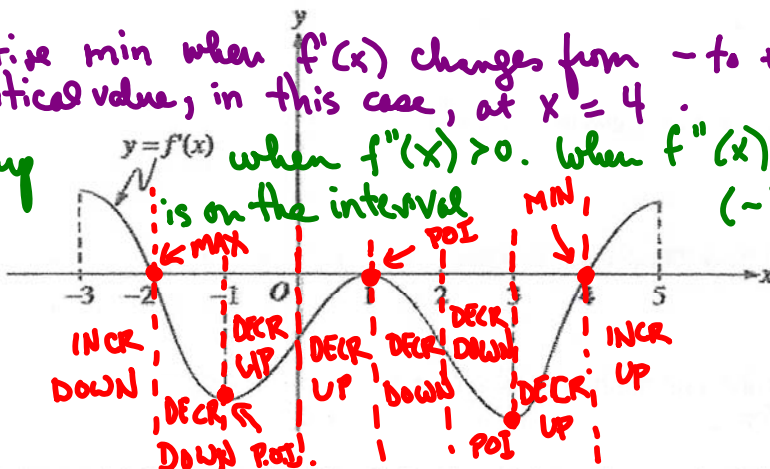 y
min when f'(x) changes from - to
value, in this case, at x = 4 .
y = f'(x) when f"(x) >0. When f"(x)
is on the interval (-
MAX POI MIN
-3 -2 -1 O 1 2 3 4 5 x
INCR DOWN
DECR UP
DECR UP
DECR DOWN
DECR DOWN
INCR UP
DECR DOWN P.O.I.
POI
DECR UP